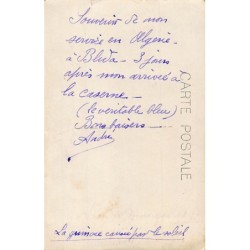 Souvenir de mon
service en Algérie
à Blida - 3 jours
après mon arrivée à
la caserne -
(le véritable bleu)
Bons baisers -
André
CARTE POSTALE
La grimace causée par le soleil